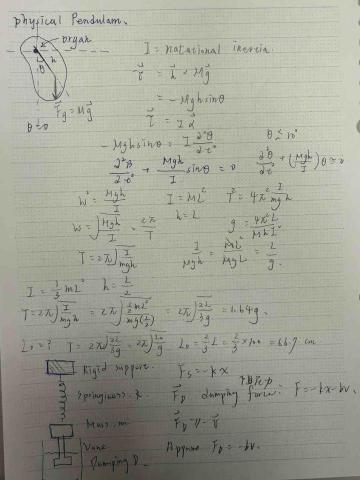 Physical Pendulum.
organ
I = rotational inertia.
θ
h
F⃗g = Mg⃗
θ=0
τ⃗ = h⃗ × Mg⃗
= -Mgh sinθ
τ⃗ = Iα⃗
-Mgh sinθ = I ∂²θ/∂t²
θ ≤ 10°
∂²θ/∂t² + Mgh/I sinθ = 0
∂²θ/∂t² + (Mgh/I)θ = 0
W² = Mgh/I
I = ML²
T² = 4π² I/mgh
h = L
W = √(Mgh/I) = 2π/T
T = 2π√(I/mgh)
I/Mgh = ML²/MgL = L/g.
I = 1/3 mL²
h = L/2
T = 2π√(I/mgh) = 2π√(1/3 mL²/mg(L/2)) = 2π√(2L/3g) = 1.64s.
L₀ = ? T = 2π√(2L/3g) = 2π√(L₀/g) L₀ = 2/3 L = 2/3 × 100 = 66.7 cm
Rigid support.
Fs = -kx
Springiness. k.
F⃗D dumping force.
F = -kx - bv.
Mass. m
Vane
Dumping b.
FD = -bv.